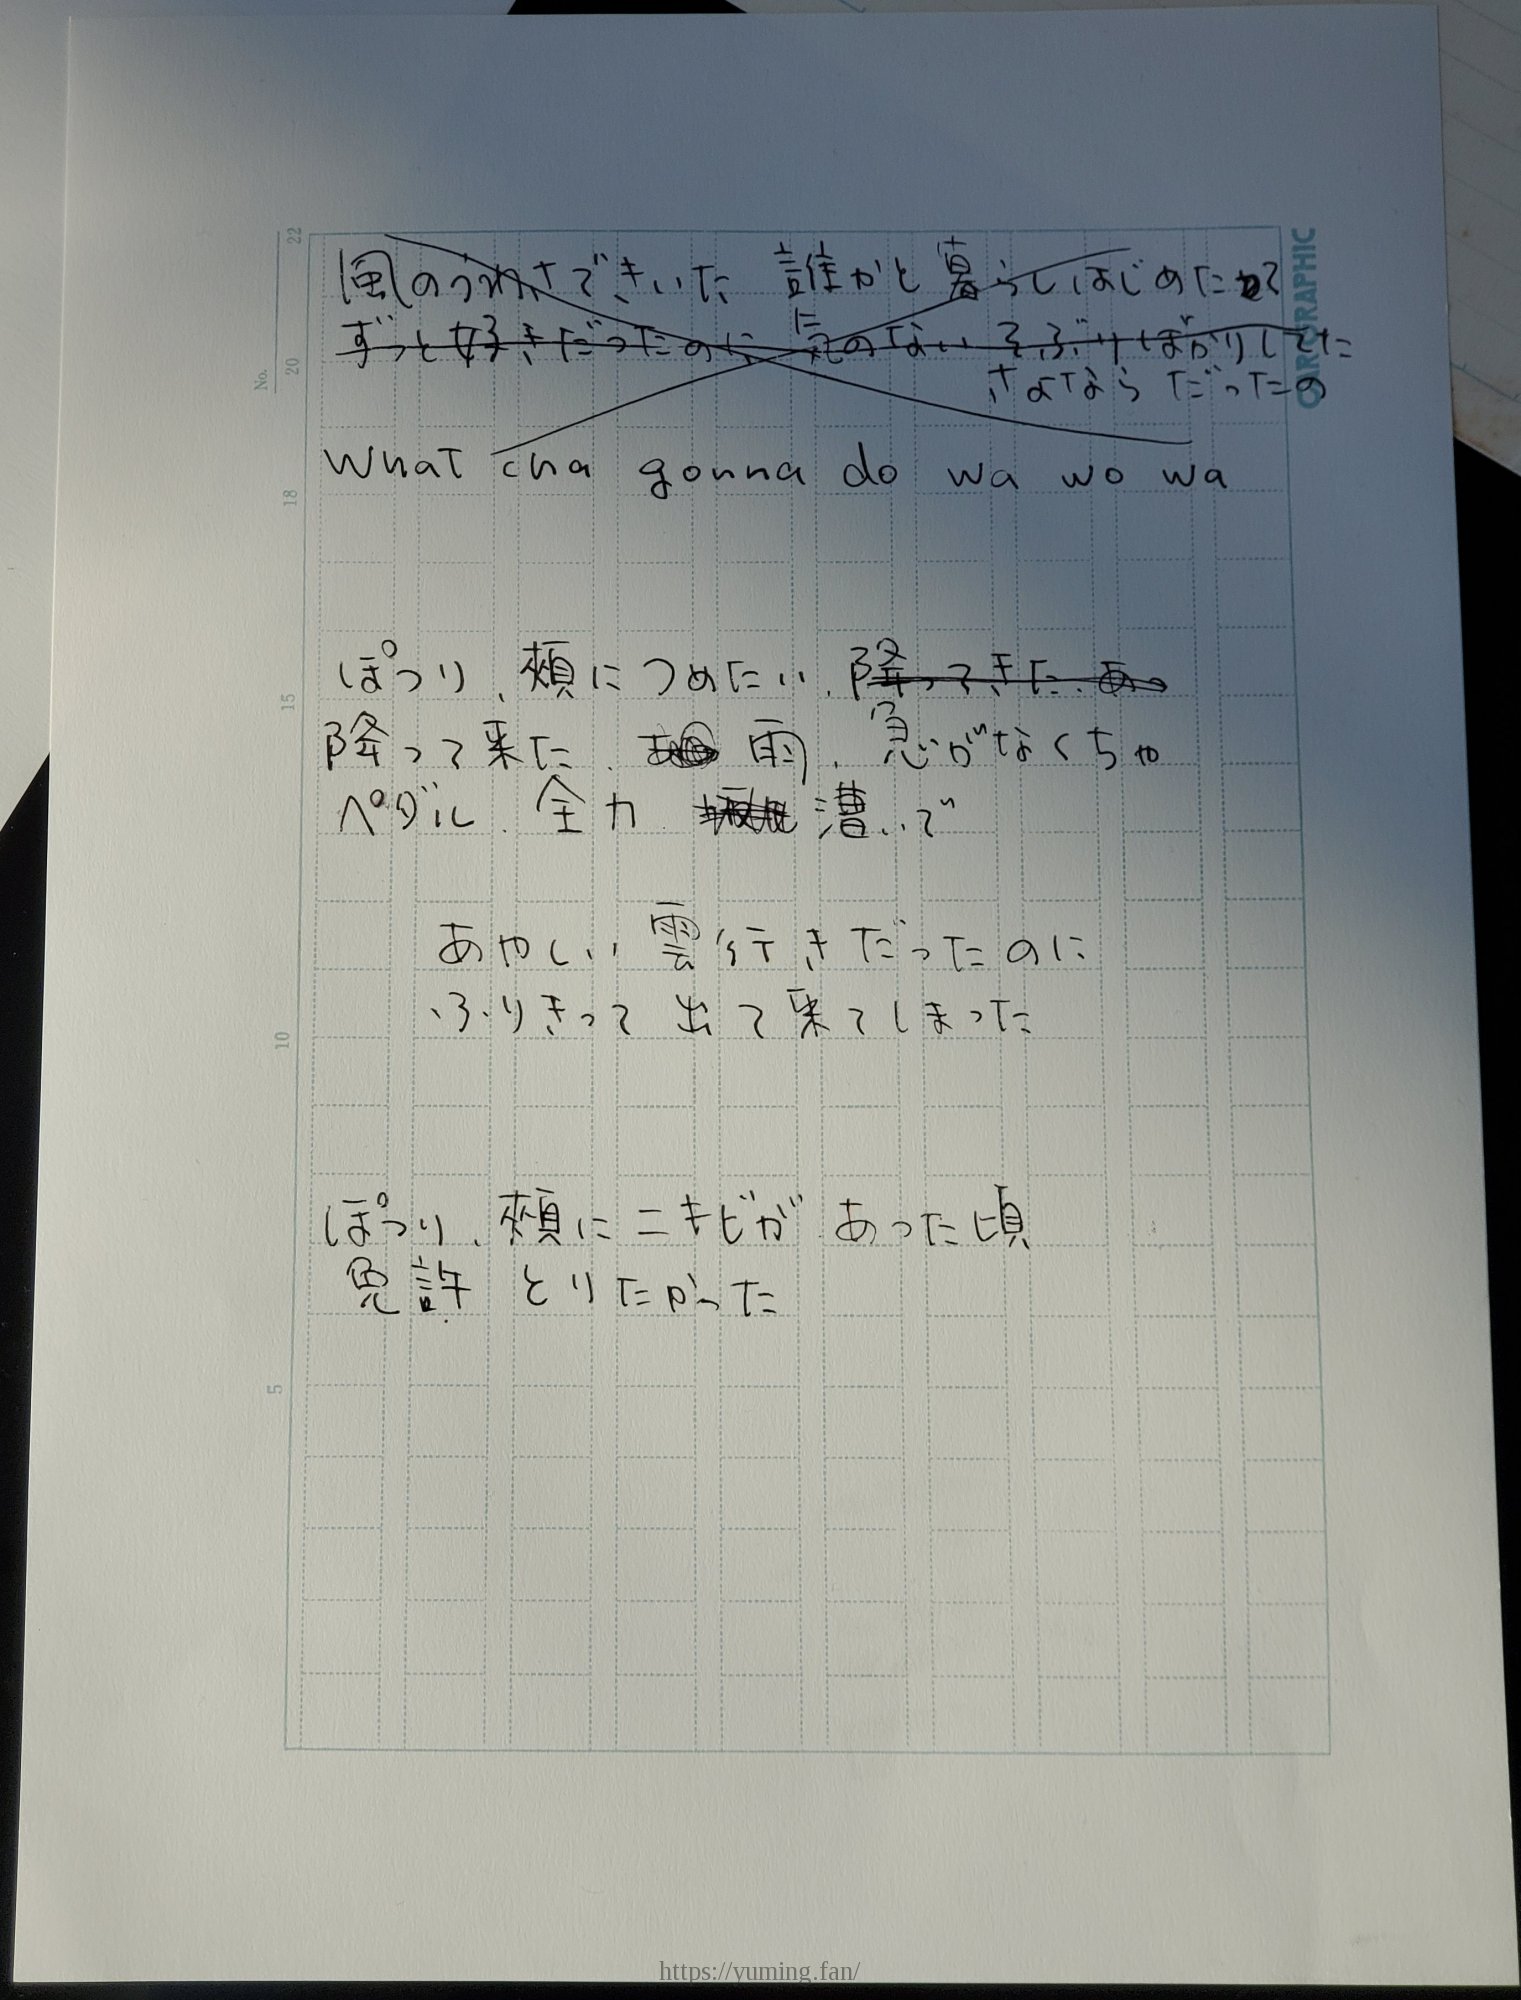 風のうわさできいた 誰かと暮らしはじめたって
ずっと好きだったのに 気のない そぶりばかりしてた
に
さよならだったの
What cha gonna do wa wo wa
ぽつり、頬につめたい、降ってきた、あ
降って来た、雨、急がなくちゃ
ペダル、全力 漕いで
あやしい雲行きだったのに
ふりきって出て来てしまった
ぽつり、頬にニキビがあった頃
免許 とりたかった
No.
22
20
18
15
10
5
CARORAPHIC
https://yuming.fan/